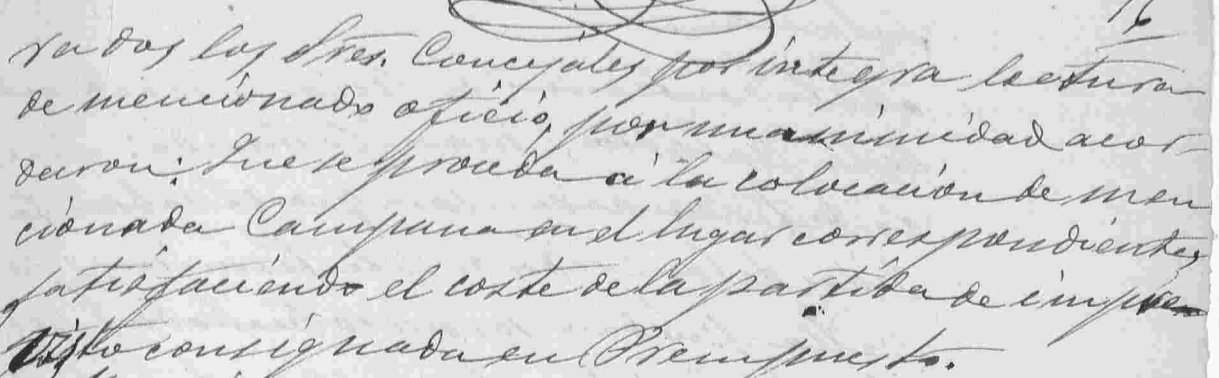 16
rados los Sres. Concejales por integra lectura
de mencionado oficio, por unanimidad acor-
daron: Que se proceda á la colocación de men
cionada Campana en el lugar correspondiente,
satisfaciendo el coste de la partida de impre
visto consignada en Presupuesto.